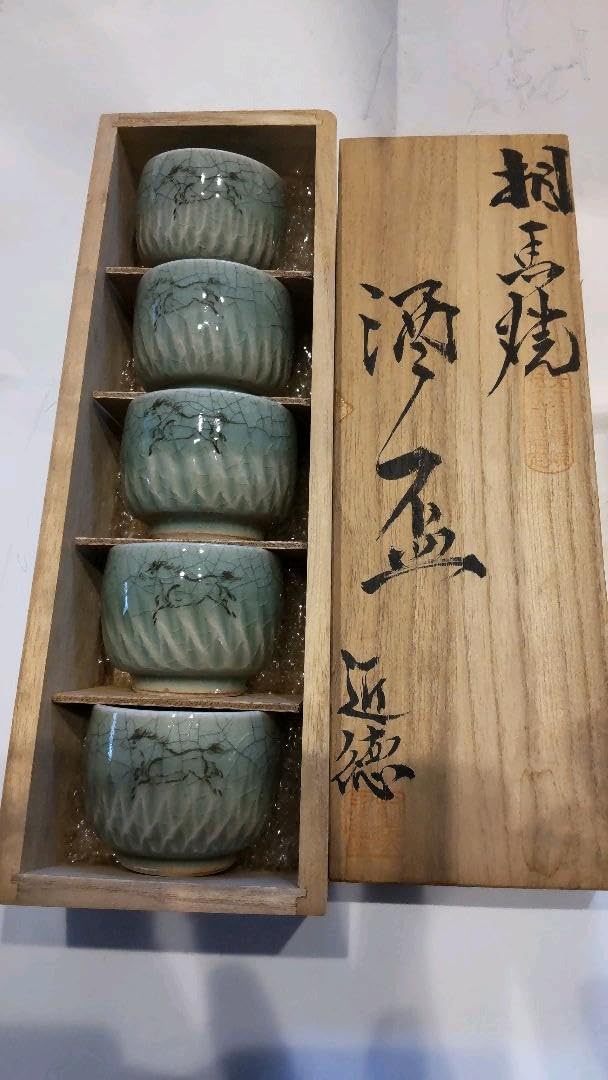 相馬焼
酒盃
近徳